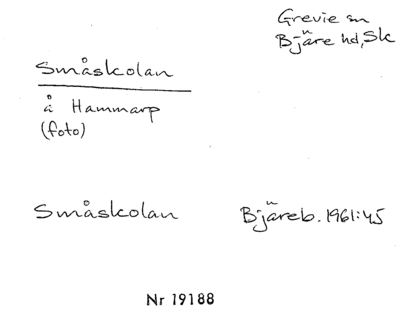 Grevie sn
Bjäre hd, Sk
Småskolan
å Hammarp
(foto)
Småskolan Bjäreb. 1961:45
Nr 19188